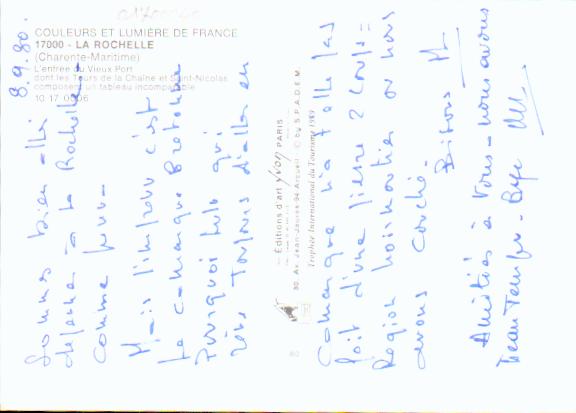 COULEURS ET LUMIÈRE DE FRANCE
17000 - LA ROCHELLE
(Charente-Maritime)
L'entrée du Vieux Port
dont les Tours de la Chaîne et Saint-Nicolas
composent un tableau incomparable
10 17 0306
8.9.80.
Sommes bien allés
déjeuner à la Rochelle -
comme prévu -
Mais l'imprévu c'est
la camarque Bretonne
Pourquoi
rêve toujours d'aller en
Éditions d'art yvon PARIS
90, Av. Jean-Jaurès 94 Arcueil © by S.P.A.D.E.M.
Trophée International du Tourisme 1969
Camargue n'a t elle pas
soit d'une pierre 2 coups =
Région Noirmoutier où nous
avons couché -
Amitiés à vous - nous avons
beau temps -